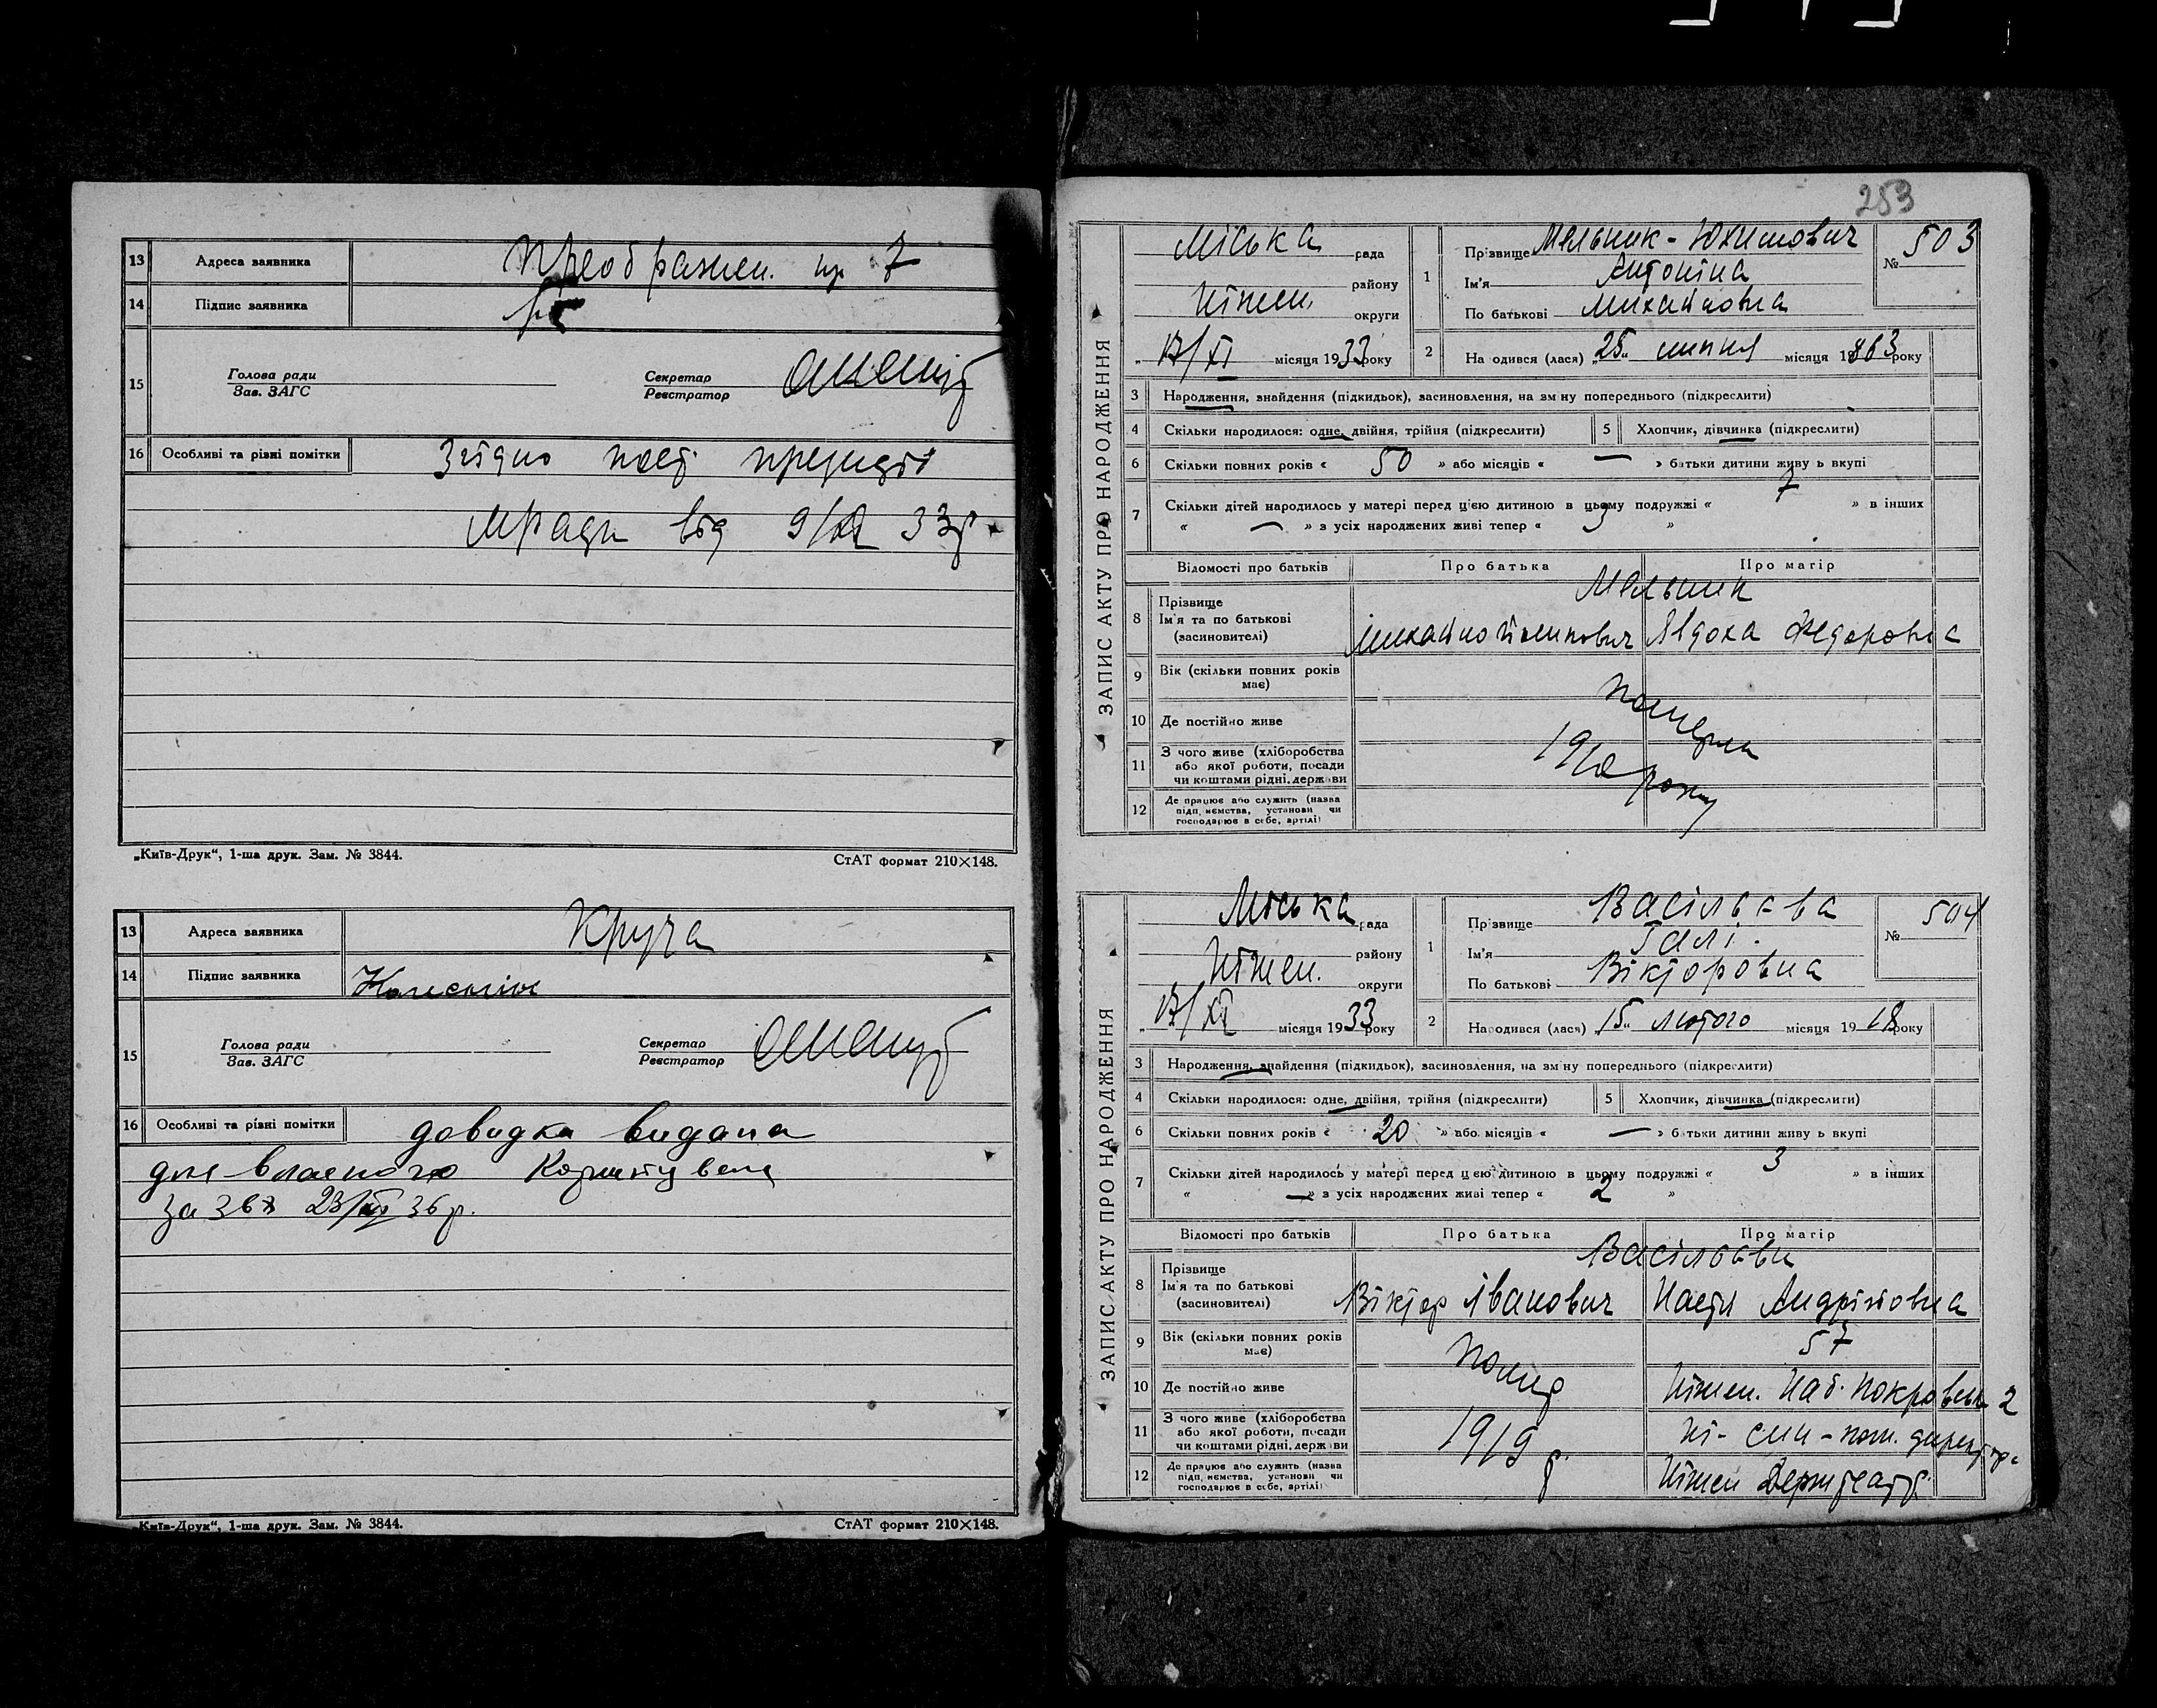 13 Адреса заявника Преображен. пр 7
14 Підпис заявника
15 Голова ради
Зав. ЗАГС
Секретар
Реєстратор
16 Особливі та різні помітки Згідно пост президії
Мради від 9/XI 33р.
„Київ-Друк“, 1-ша друк. Зам. № 3844. СтАТ формат 210×148.
13 Адреса заявника Круча
14 Підпис заявника
15 Голова ради
Зав. ЗАГС
Секретар
Реєстратор
16 Особливі та різні помітки довидка видана
для власного
за 36р.
„Київ-Друк“, 1-ша друк. Зам. № 3844. СтАТ формат 210×148.
253
ЗАПИС АКТУ ПРО НАРОДЖЕННЯ
Міська рада
району
Ніжен. округи
„ 17/XI місяця 1933 року
1 Прізвище Мельник-Юхимович
Ім'я Антоніна
По батькові Михайловна
№ 503
2 Народився (лася) „25„ липня місяця 1863 року
3 Народження, знайдення (підкидьок), засиновлення, на зміну попереднього (підкреслити)
4 Скільки народилося: одне, двійня, трійня (підкреслити) 5 Хлопчик, дівчинка (підкреслити)
6 Скільки повних років « 50 » або місяців « — » батьки дитини живуть вкупі
7 Скільки дітей народилось у матері перед цією дитиною в цьому подружжі « 7 » в інших
« — » з усіх народжених живі тепер « 3 »
Відомості про батьків Про батька Про матір
8 Прізвище
Ім'я та по батькові
(засиновителі)
Мельник
Михайло Авдоха Федоровна
9 Вік (скільки повних років
має)
10 Де постійно живе
померли
11 З чого живе (хліборобства
або якої роботи, посади
чи коштами рідні, держави
1910 року
12 Де працює або служить (назва
підприємства, установи чи
господарює в себе, артілі)
ЗАПИС АКТУ ПРО НАРОДЖЕННЯ
Міська рада
району
Ніжен. округи
„ 17/XI місяця 1933 року
1 Прізвище Васільєва
Ім'я
По батькові Вікторовна
№ 504
2 Народився (лася) „15„ лютого місяця 1918 року
3 Народження, знайдення (підкидьок), засиновлення, на зміну попереднього (підкреслити)
4 Скільки народилося: одне, двійня, трійня (підкреслити) 5 Хлопчик, дівчинка (підкреслити)
6 Скільки повних років « 20 » або місяців « — » батьки дитини живуть вкупі
7 Скільки дітей народилось у матері перед цією дитиною в цьому подружжі « 3 » в інших
« — » з усіх народжених живі тепер « 2 »
Відомості про батьків Про батька Про матір
8 Прізвище
Ім'я та по батькові
(засиновителі)
Васілєви
Віктор Іванович Настя Андріївна
9 Вік (скільки повних років
має)
57
10 Де постійно живе
помер Ніжен. Наб. Покровськ 2
11 З чого живе (хліборобства
або якої роботи, посади
чи коштами рідні, держави
1919 р. ні - син - пом. директора
12 Де працює або служить (назва
підприємства, установи чи
господарює в себе, артілі)
Ніжен Держтеатр.